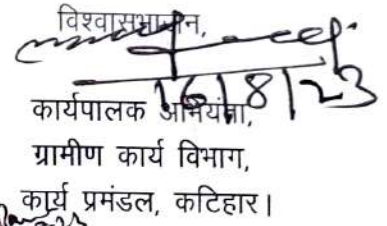 विश्वासभाजन,
16/8/23
कार्यपालक अभियंता,
ग्रामीण कार्य विभाग,
कार्य प्रमंडल, कटिहार।